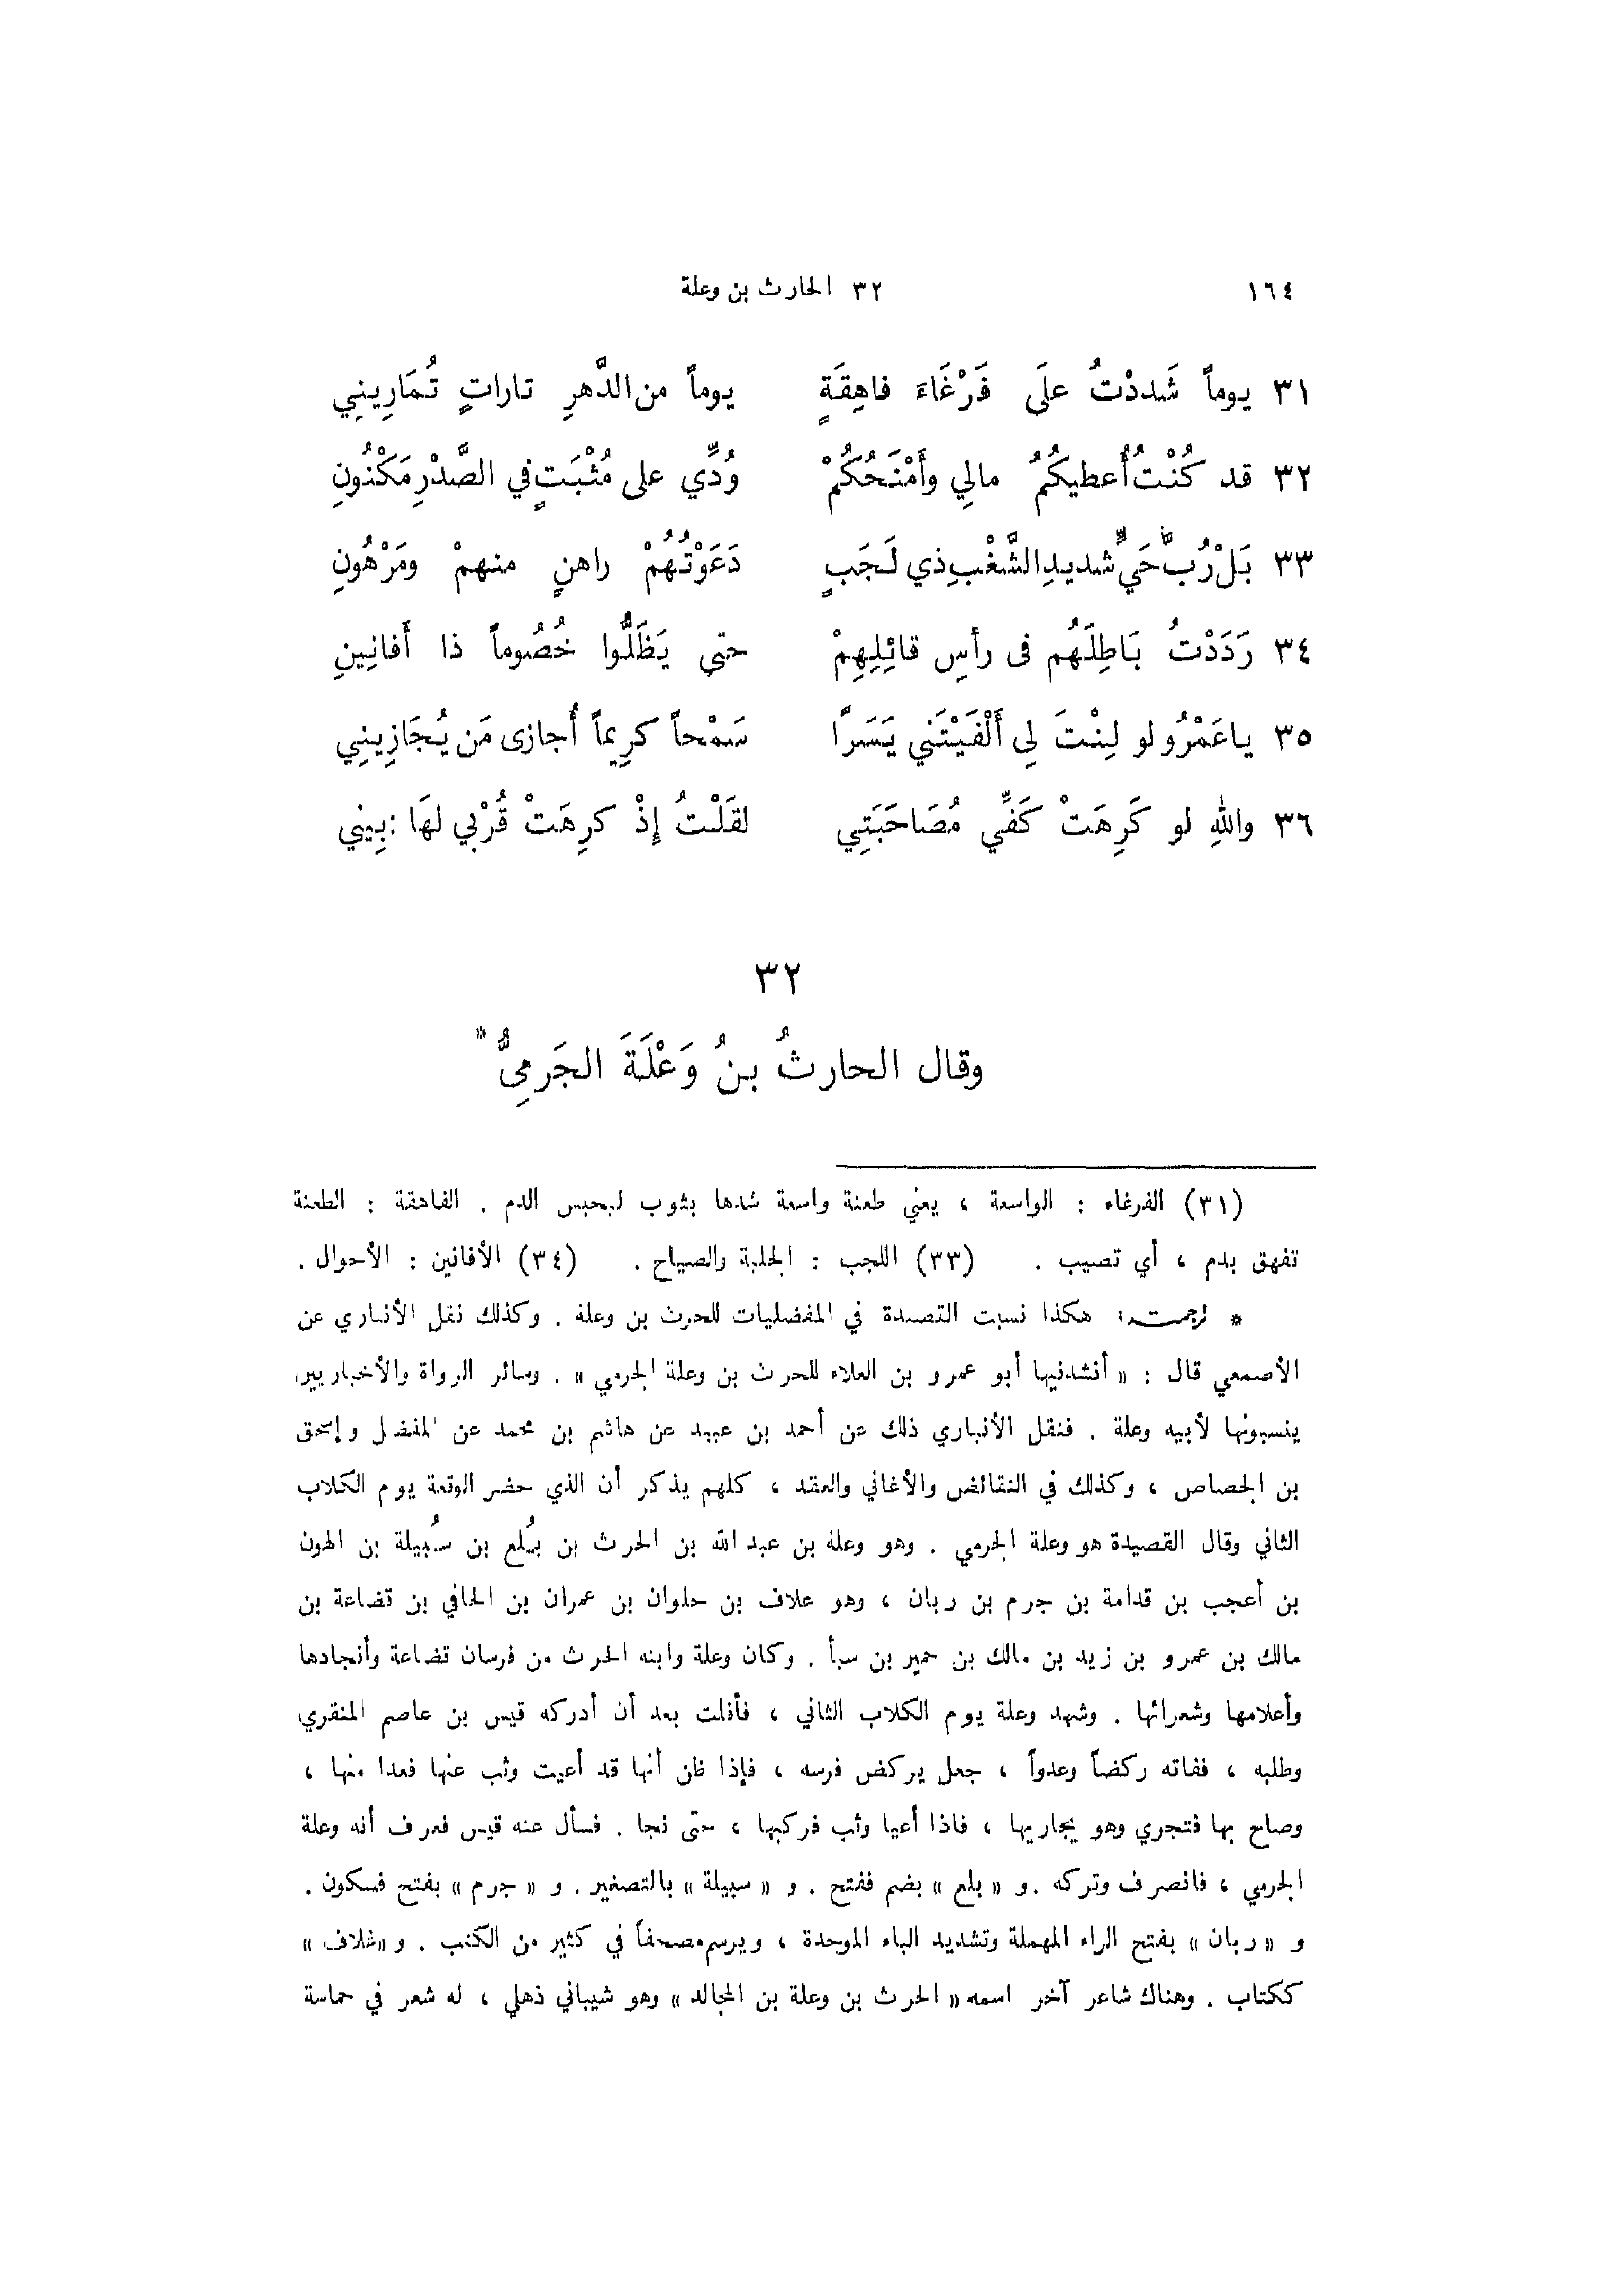 ١٦٤ ٣٢ الحارث بن وعلة
٣١ يوماً شَددْتُ علَى فَرْغَاءَ فاهِقَةٍ يوماً من الدَّهرِ تاراتٍ تُمَارِينِي
٣٢ قد كُنْتُ أُعطيكُمُ مالي وأَمْنَحُكُمْ وُدِّي على مُثْبَتٍ في الصَّدْرِ مَكْنُونِ
٣٣ بَلْ رُبَّ حَيٍّ شديدِ الشَّغْبِ ذي لَجَبٍ دَعَوْتُهُمْ راهنٍ منهمْ ومَرْهُونِ
٣٤ رَدَدْتُ بَاطِلَهُم فى رأسِ قائِلِهِمْ حتى يَظَلُّوا خُصُوماً ذا أَفانِينِ
٣٥ ياعَمْرُو لو لِنْتَ لِى أَلْفَيْتَنِي يَسَرًا سَمْحاً كرِيماً أُجازى مَن يُجَازِينِي
٣٦ واللهِ لو كَرِهَتْ كَفِّي مُصَاحَبَتِي لقَلْتُ إِذْ كرِهَتْ قُرْبي لهَا : بِينِي
٣٢
وقال الحارثُ بنُ وَعْلَةَ الجَرمِىُّ *
(٣١) الفرغاء : الواسعة ، يعني طعنة واسعة شدها بثوب ليحبس الدم . الفاهقة : الطعنة
تفهق بدم ، أي تصيب . (٣٣) اللجب : الجلبة والصياح . (٣٤) الأفانين : الأحوال .
* ترجمته: هكذا نسبت القصيدة في المفضليات للحرث بن وعلة . وكذلك نقل الأنباري عن
الأصمعي قال : « أنشدنيها أبو عمرو بن العلاء للحرث بن وعلة الجرمي » . وسائر الرواة والأخباريين
ينسبونها لأبيه وعلة . فنقل الأنباري ذلك عن أحمد بن عبيد عن هاشم بن محمد عن المفضل وإسحق
بن الجصاص ، وكذلك في النقائض والأغاني والعقد ، كلهم يذكر أن الذي حضر الوقعة يوم الكلاب
الثاني وقال القصيدة هو وعلة الجرمي . وهو وعلة بن عبد الله بن الحرث بن بُلع بن سُبيلة بن الهون
بن أعجب بن قدامة بن جرم بن ربان ، وهو علاف بن حلوان بن عمران بن الحافي بن قضاعة بن
مالك بن عمرو بن زيد بن مالك بن حمير بن سبأ . وكان وعلة وابنه الحرث من فرسان قضاعة وأنجادها
وأعلامها وشعرائها . وشهد وعلة يوم الكلاب الثاني ، فأفلت بعد أن أدركه قيس بن عاصم المنقري
وطلبه ، ففاته ركضاً وعدواً ، جعل يركض فرسه ، فإذا ظن أنها قد أعيت وثب عنها فعدا منها ،
وصاح بها فتجري وهو يجاريها ، فاذا أعيا وثب فركبها ، حتى نجا . فسأل عنه قيس فعرف أنه وعلة
الجرمي ، فانصرف وتركه . و « بلع » بضم ففتح . و « سبيلة » بالتصغير . و « جرم » بفتح فسكون .
و « ربان » بفتح الراء المهملة وتشديد الباء الموحدة ، ويرسم مصحفاً في كثير من الكتب . و « علاف »
ككتاب . وهناك شاعر آخر اسمه « الحرث بن وعلة بن المجالد » وهو شيباني ذهلي ، له شعر في حماسة